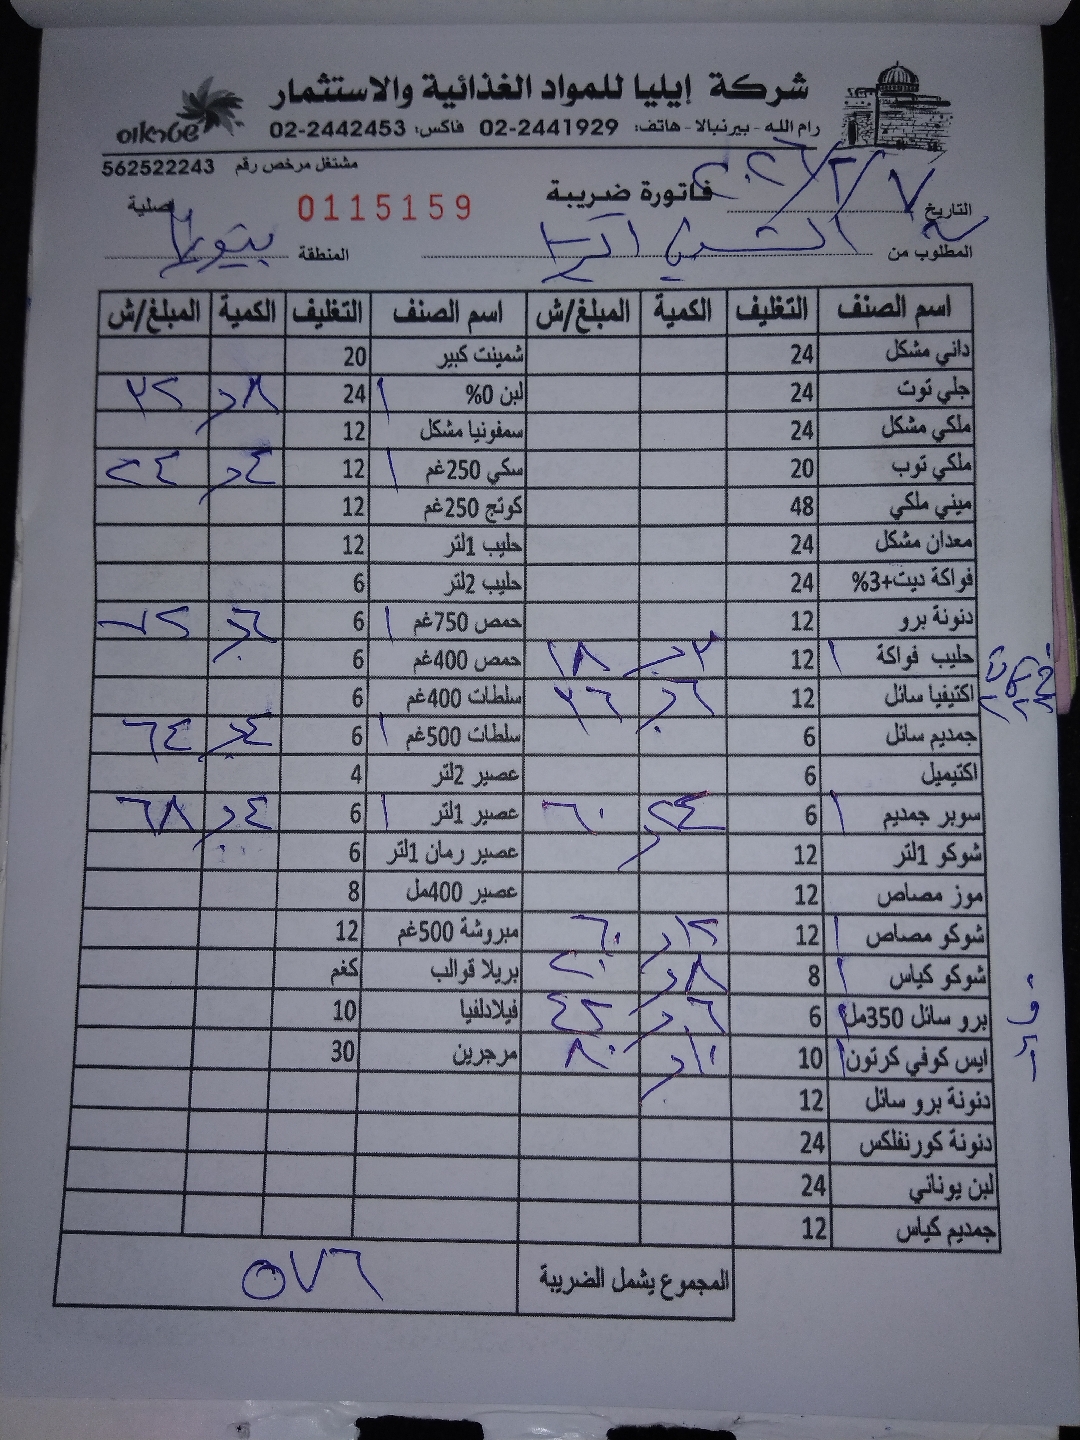 شركة إيليا للمواد الغذائية والاستثمار
رام الله - بيرنبالا - هاتف: 02-2441929 فاكس: 02-2442453
שטראוס
مشتغل مرخص رقم 562522243
التاريخ ٢٠٢٦/٢/٧ فاتورة ضريبة 0115159
المطلوب من المنطقة
اسم الصنف التغليف الكمية المبلغ/ش اسم الصنف التغليف الكمية المبلغ/ش
داني مشكل 24 شمينت كبير 20
جلي توت 24 لبن 0% ١ 24 ٨ ٣٢
ملكي مشكل 24 سمفونيا مشكل 12
ملكي توب 20 سكي 250غم ١ 12 ٤ ٢٤
ميني ملكي 48 كوتج 250غم 12
معدان مشكل 24 حليب 1لتر 12
فواكة ديت+3% 24 حليب 2لتر 6
دنونة برو 12 حمص 750غم ١ 6 ٦
حليب فواكة ١ 12 ٣ ١٨ حمص 400غم 6
اكتيفيا سائل 12 ٦ ٣٦ سلطات 400غم 6
جمديم سائل 6 سلطات 500غم ١ 6 ٤ ٦٤
اكتيميل 6 عصير 2لتر 4
سوبر جمديم ١ 6 ٢٤ ٦٠ عصير 1لتر ١ 6 ٤ ٦٨
شوكو 1لتر 12 عصير رمان 1لتر 6
موز مصاص 12 عصير 400مل 8
شوكو مصاص ١ 12 ١٢ ٦٠ مبروشة 500غم 12
شوكو كياس ١ 8 ٨ ٢٠ بريلا قوالب كغم
برو سائل 350مل ١ 6 ٦ ٤٢ فيلادلفيا 10
ايس كوفي كرتون ١ 10 ١٠ ٨٠ مرجرين 30
دنونة برو سائل 12
دنونة كورنفلكس 24
لبن يوناني 24
جمديم كياس 12
المجموع يشمل الضريبة ٥٧٦